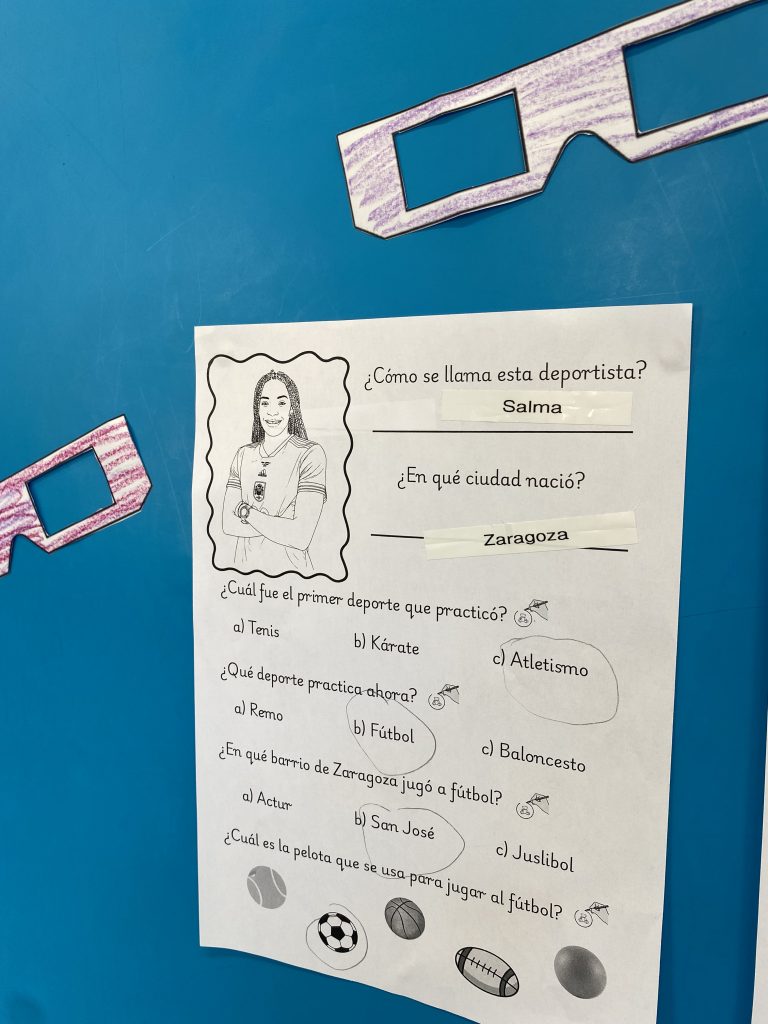 ¿Cómo se llama esta deportista?
Salma
¿En qué ciudad nació?
Zaragoza
¿Cuál fue el primer deporte que practicó?
a) Tenis b) Kárate c) Atletismo
¿Qué deporte practica ahora?
a) Remo b) Fútbol c) Baloncesto
¿En qué barrio de Zaragoza jugó a fútbol?
a) Actur b) San José c) Juslibol
¿Cuál es la pelota que se usa para jugar al fútbol?